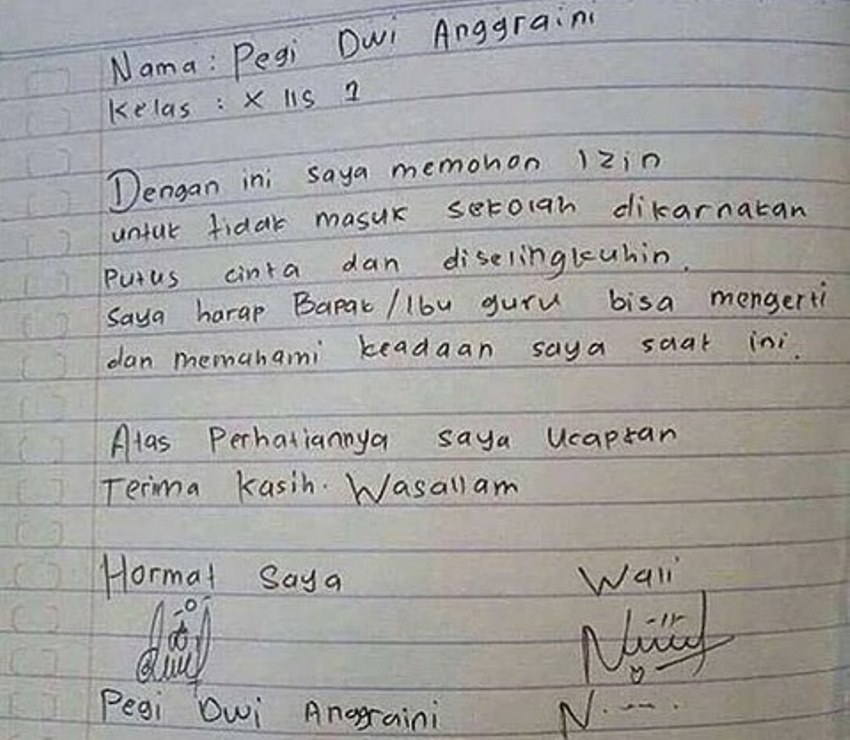 Nama : Pegi Dwi Anggraini
Kelas : X IIS 1
Dengan ini saya memohon Izin
untuk tidak masuk sekolah dikarnakan
Putus cinta dan diselingkuhin.
saya harap Bapak/Ibu guru bisa mengerti
dan memahami keadaan saya saat ini.
Atas Perhatiannya saya Ucapkan
Terima kasih. Wasallam
Hormat Saya Wali
Pegi Dwi Anggraini N. ---.